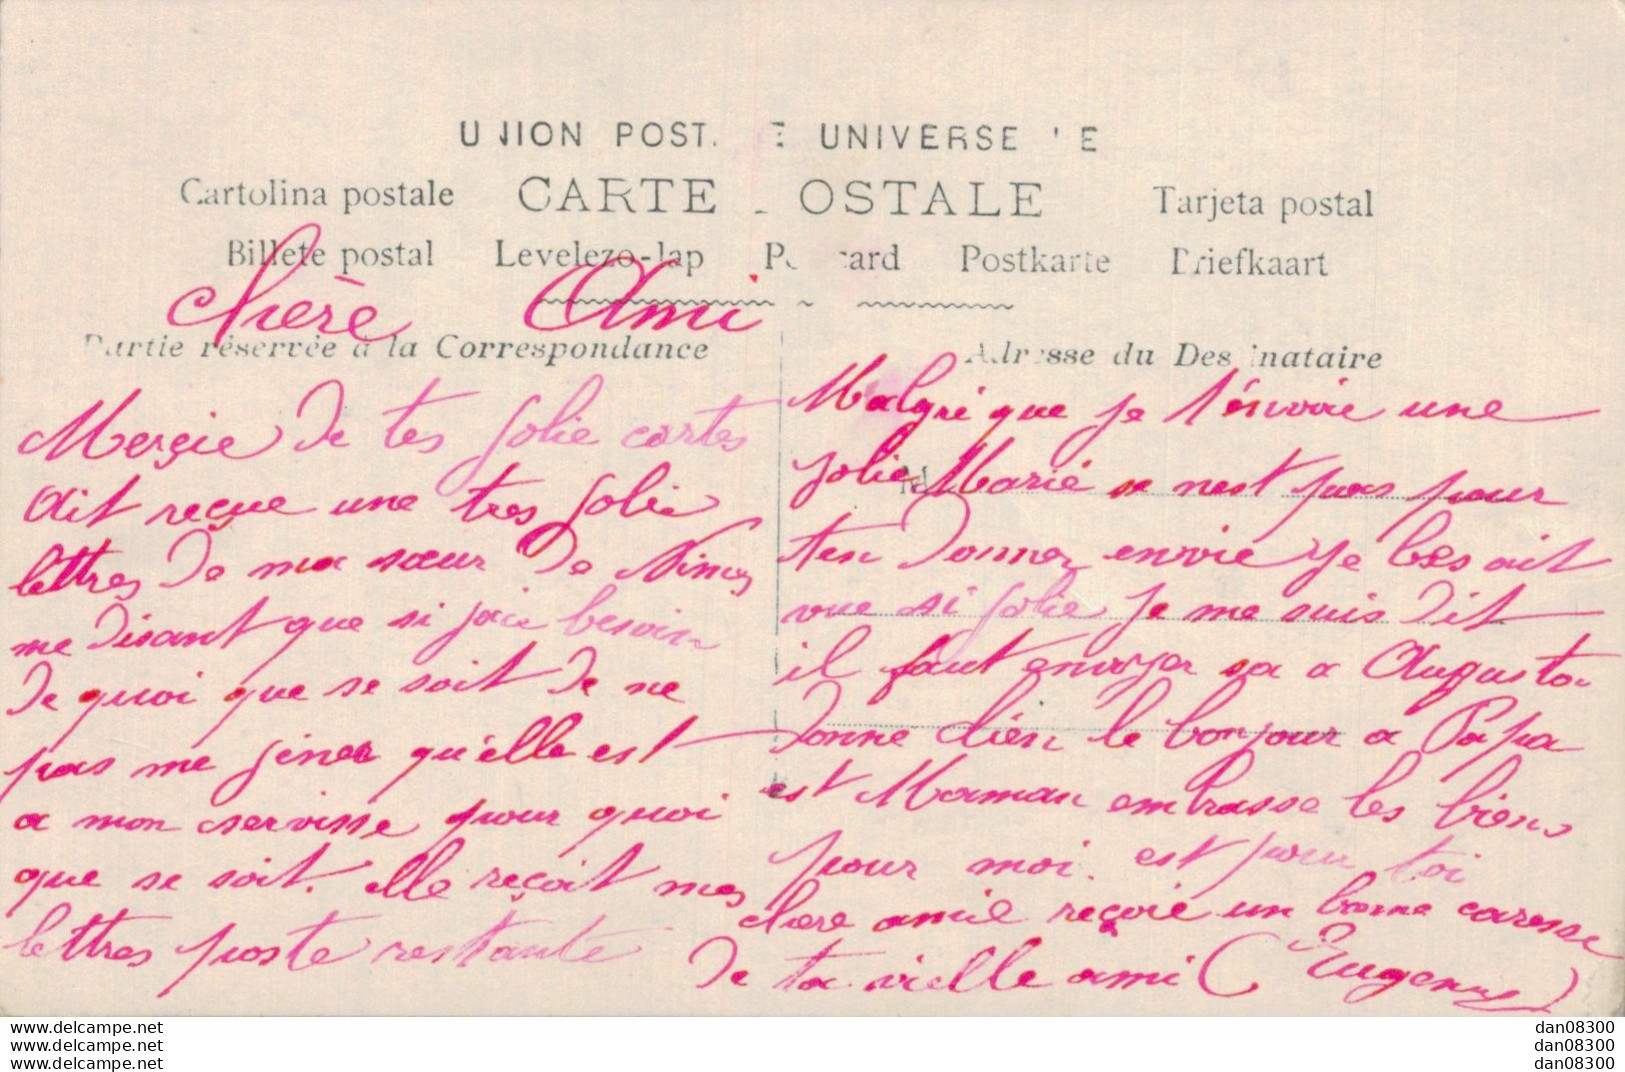 UNION POST E UNIVERSE E
Cartolina postale CARTE POSTALE Tarjeta postal
Billete postal Levelezo-lap Postcard Postkarte Briefkaart
chère Ami
Partie réservée à la Correspondance
Adresse du Destinataire
Merçie de tes jolie cartes
Ait reçue une tres jolie
lettres de ma sœur de Nimes
me disant que si jaie besoin
de quoi que se soit de ne
pas me jéner qu'elle est
a mon servisse pour quoi
que se soit. elle reçoit mes
lettres poste restante
Malgré que je t'énvoie une
jolie Marié se nest pas pour
ten donner envie je les ait
vue si jolie je me suis dit
il faut envoyer sa a Augusta
donne bien le bonjour a Papa
est Maman embrasse les biens
pour moi. est pour toi
chère amie reçoie un bonne caresse
de ta vielle ami
www.delcampe.net
www.delcampe.net
www.delcampe.net
dan08300
dan08300
dan08300